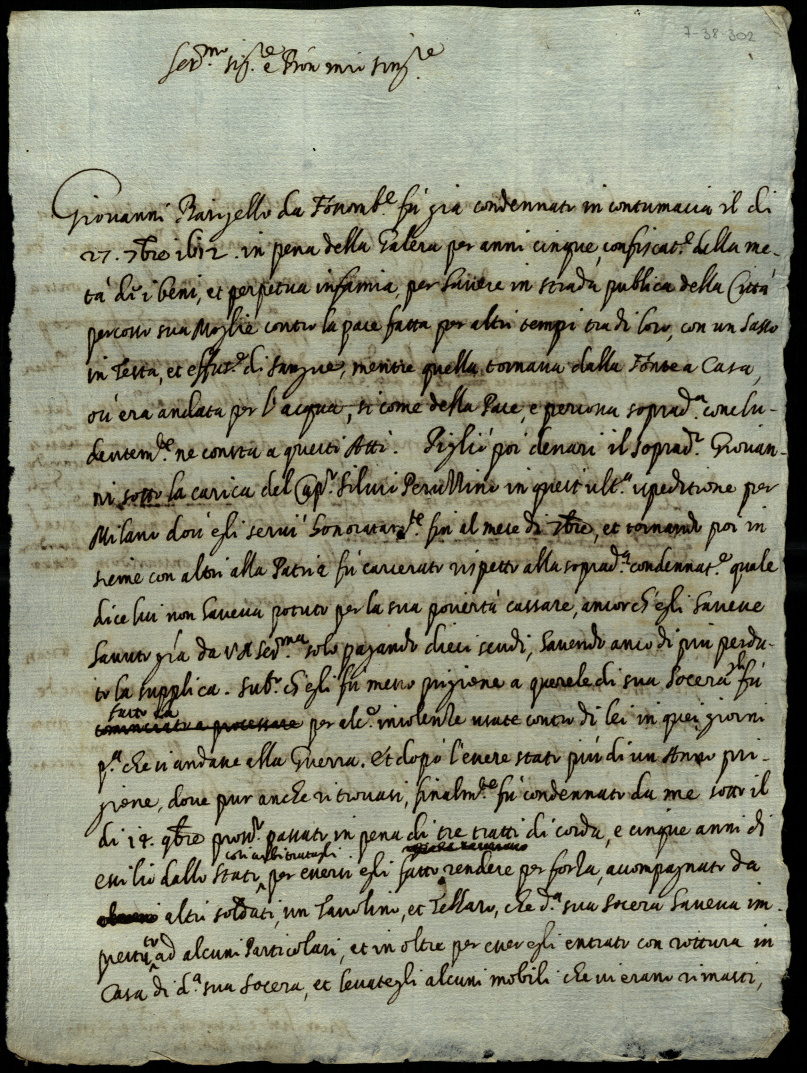 7-38-302
Ser.mo Sig.re e Pron mio sing.re
Giovanni Barigello da Fossomb.e fù già condennato in contumacia il di
27. 7bre 1612. in pena della Galera per anni cinque, confiscat.e della me-
tà di i beni, et perpetua infamia, per havere in strada publica della Città
percosso sua Moglie contro la pace fatta per altri tempi tra di loro, con un sasso
in Testa, et effus.e di sangue, mentre quella tornava dalla Fonte a Casa,
ov'era andata per l'acqua, si come della Pace, e percossa soprad.a conclu-
dentem.te ne consta a questi Atti. Pigliò poi denari il soprad.o Giovan-
ni sotto la carica del Cap.o Silvio Peruzzino in quest'ult.a speditione per
Milano dov'egli servì honoratam.te fin al mese di 7bre, et tornando poi in
sieme con altri alla Patria fù carcerato rispetto alla soprad.a condennat.e quale
dice lui non haveva potuto per la sua povertà cassare, ancorch'egli havesse
havuto già da V A Ser.ma solo pagando dieci scudi, havendo anco di più perdu-
to la supplica. Sub.o ch'egli fù messo prigione a querele di sua Socera gli fù
fatto ca
cominciato a processare per alc.e insolenze usate contro di lei in quei giorni
p.a che si andasse alla Guerra. Et dopò l'essere stato più di un Anno pri-
gione, dove pur anche ritrovasi, finalm.te fù condennato da me sotto il
di 14. 9bre pross.o passato in pena di tre tratti di corda, e cinque anni di
così arbitratigli
esilio dallo Stato per essersi egli fatto rendere per forza, accompagnato da
altri soldati, un Tavolino, et Tellaro, che d.a sua Socera haveva im-
prestato ad alcuni Particolari, et in oltre per esser egli entrato con rottura in
Casa di d.a sua Socera, et levategli alcuni mobili che vi erano rimasti,